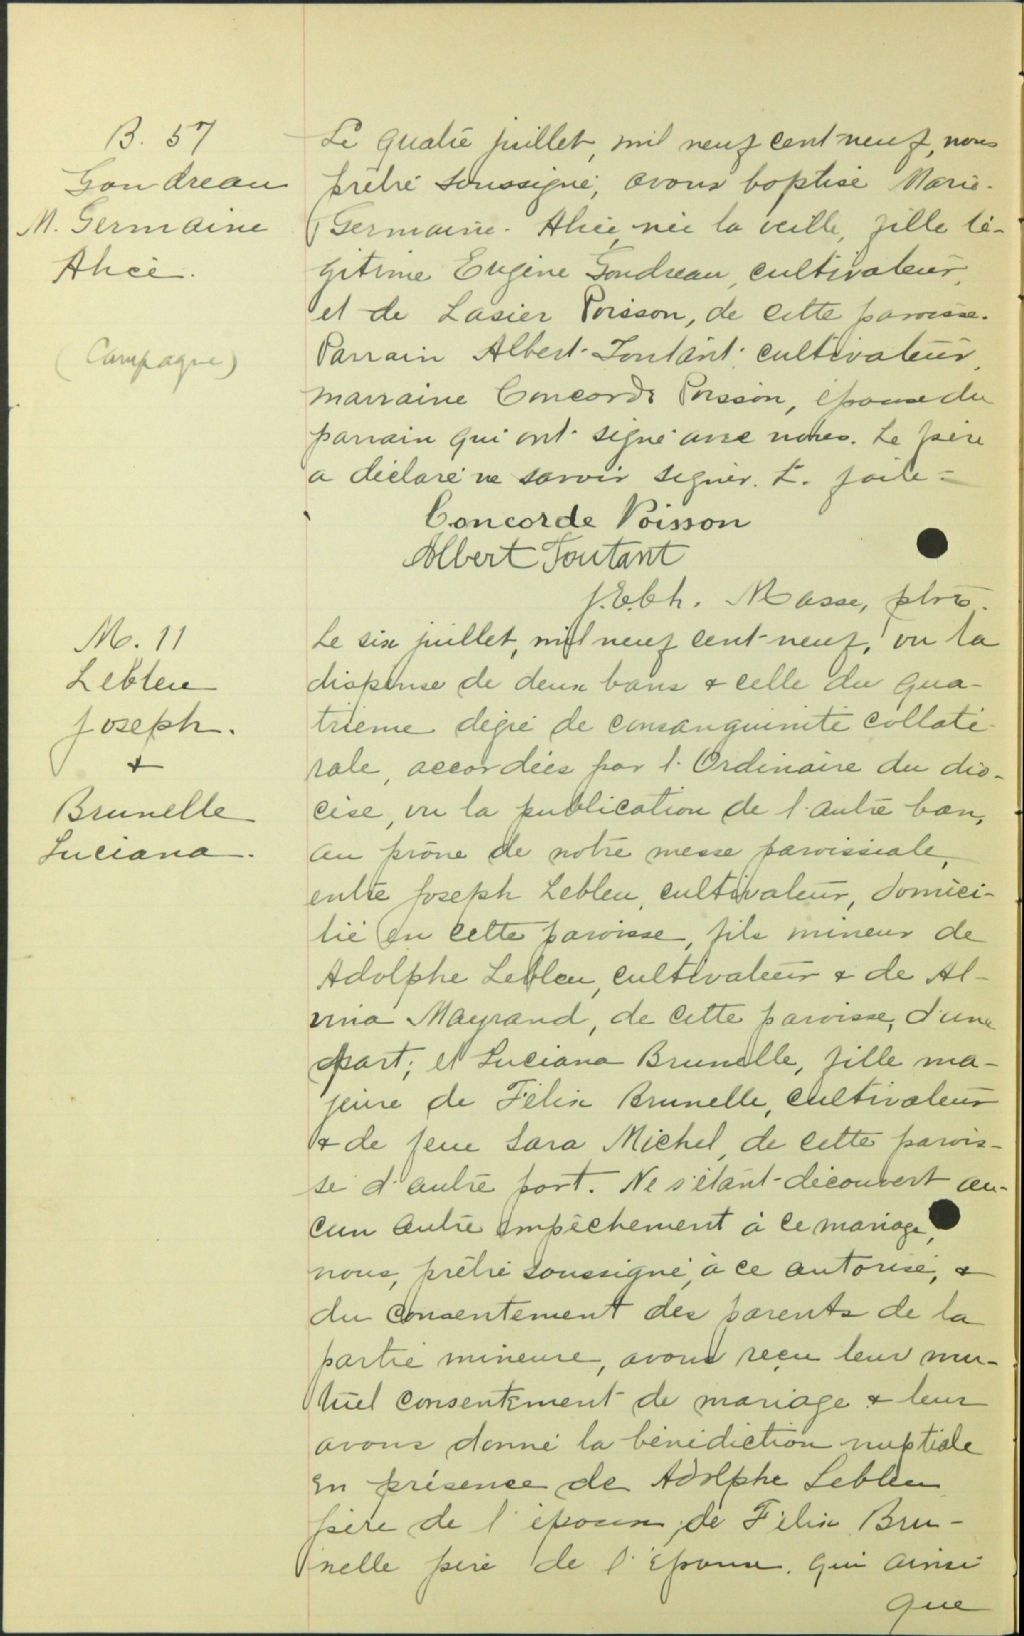 B. 57
Goudreau
M. Germaine
Alice.
(Campagne)
Le quatre juillet, mil neuf cent neuf, nous
prêtre soussigné, avons baptisé Marie-
Germaine-Alice, née la veille, fille lé-
gitime Eugène Goudreau, cultivateur,
et de Lasier Poisson, de cette paroisse.
Parrain Albert Toutant cultivateur,
marraine Concorde Poisson, épouse du
parrain qui ont signé avec nous. Le père
a déclaré ne savoir signer. L. faite =
Concorde Poisson
Albert Toutant
J.E.Ch. Masse, ptre.
M. 11
Lebleu
Joseph.
+
Brunelle
Luciana.
Le six juillet, mil neuf cent neuf, vu la
dispense de deux bans & celle du qua-
trième degré de consanguinité collaté-
rale, accordées par l'Ordinaire du dio-
cèse, vu la publication de l'autre ban,
au prône de notre messe paroissiale,
entre Joseph Lebleu, cultivateur, domici-
lié en cette paroisse, fils mineur de
Adolphe Lebleu, cultivateur & de Al-
vina Mayrand, de cette paroisse, d'une
part; et Luciana Brunelle, fille ma-
jeure de Félix Brunelle, cultivateur
& de feue Sara Michel, de cette parois-
se d'autre part. Ne s'étant découvert au-
cun autre empêchement à ce mariage,
nous, prêtre soussigné, à ce autorisé, &
du consentement des parents de la
partie mineure, avons reçu leur mu-
tuel consentement de mariage & leur
avons donné la bénédiction nuptiale
en présence de Adolphe Lebleu
père de l'époux, de Félix Bru-
nelle père de l'épouse. qui ainsi
que